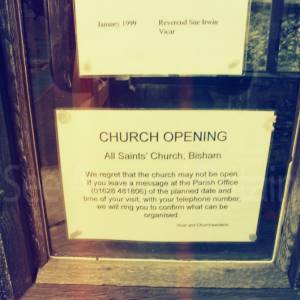 January 1999 Reverend Sue Irwin
Vicar
CHURCH OPENING
All Saints' Church, Bisham
We regret that the church may not be open.
If you leave a message at the Parish Office
(01628 481806) of the planned date and
time of your visit, with your telephone number,
we will ring you to confirm what can be
organised.
Vicar and Churchwardens